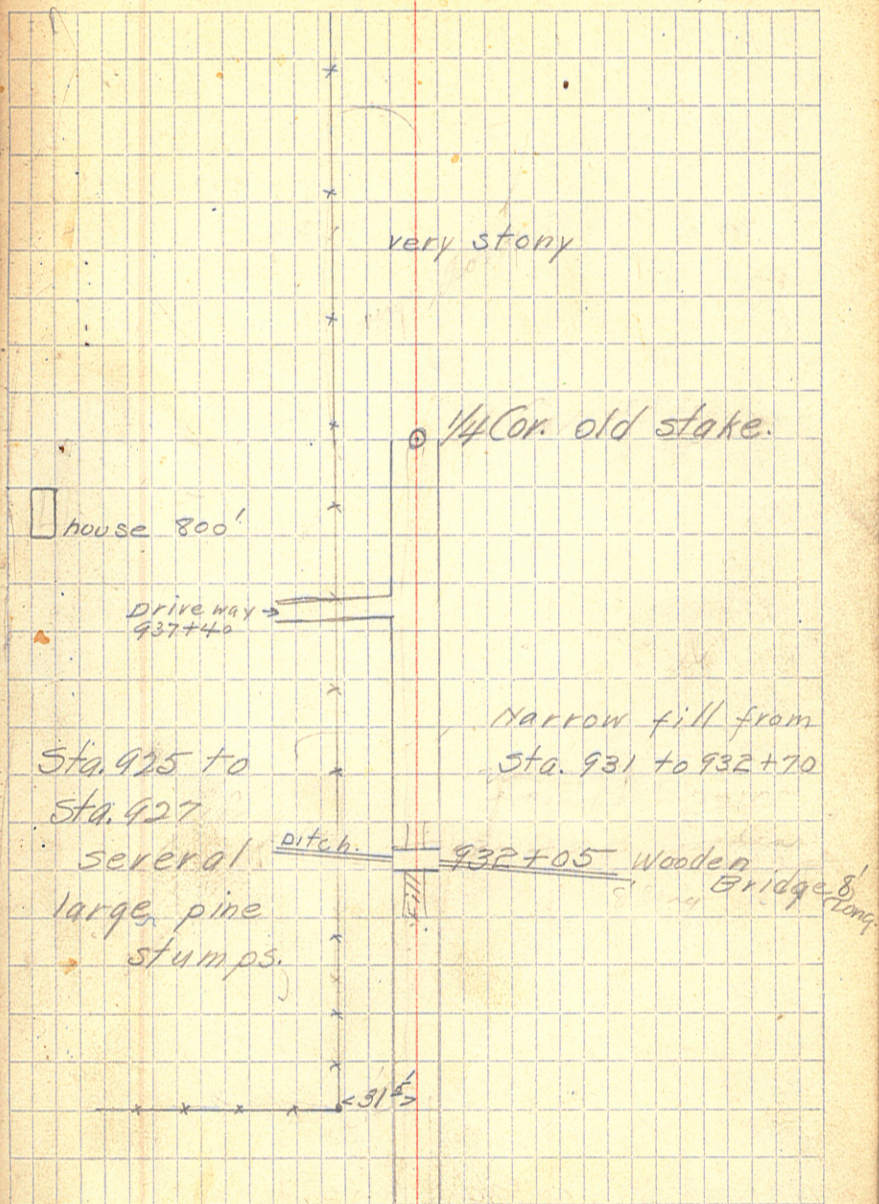 very stony
1/4 Cor. old stake.
house 800'
Driveway →
937+40
Narrow fill from
Sta. 931 to 932+70
Sta. 925 to
Sta. 927
several
large pine
stumps.
Ditch.
932+05 Wooden
Bridge 8'
Long.
Fill
<31⁵'>